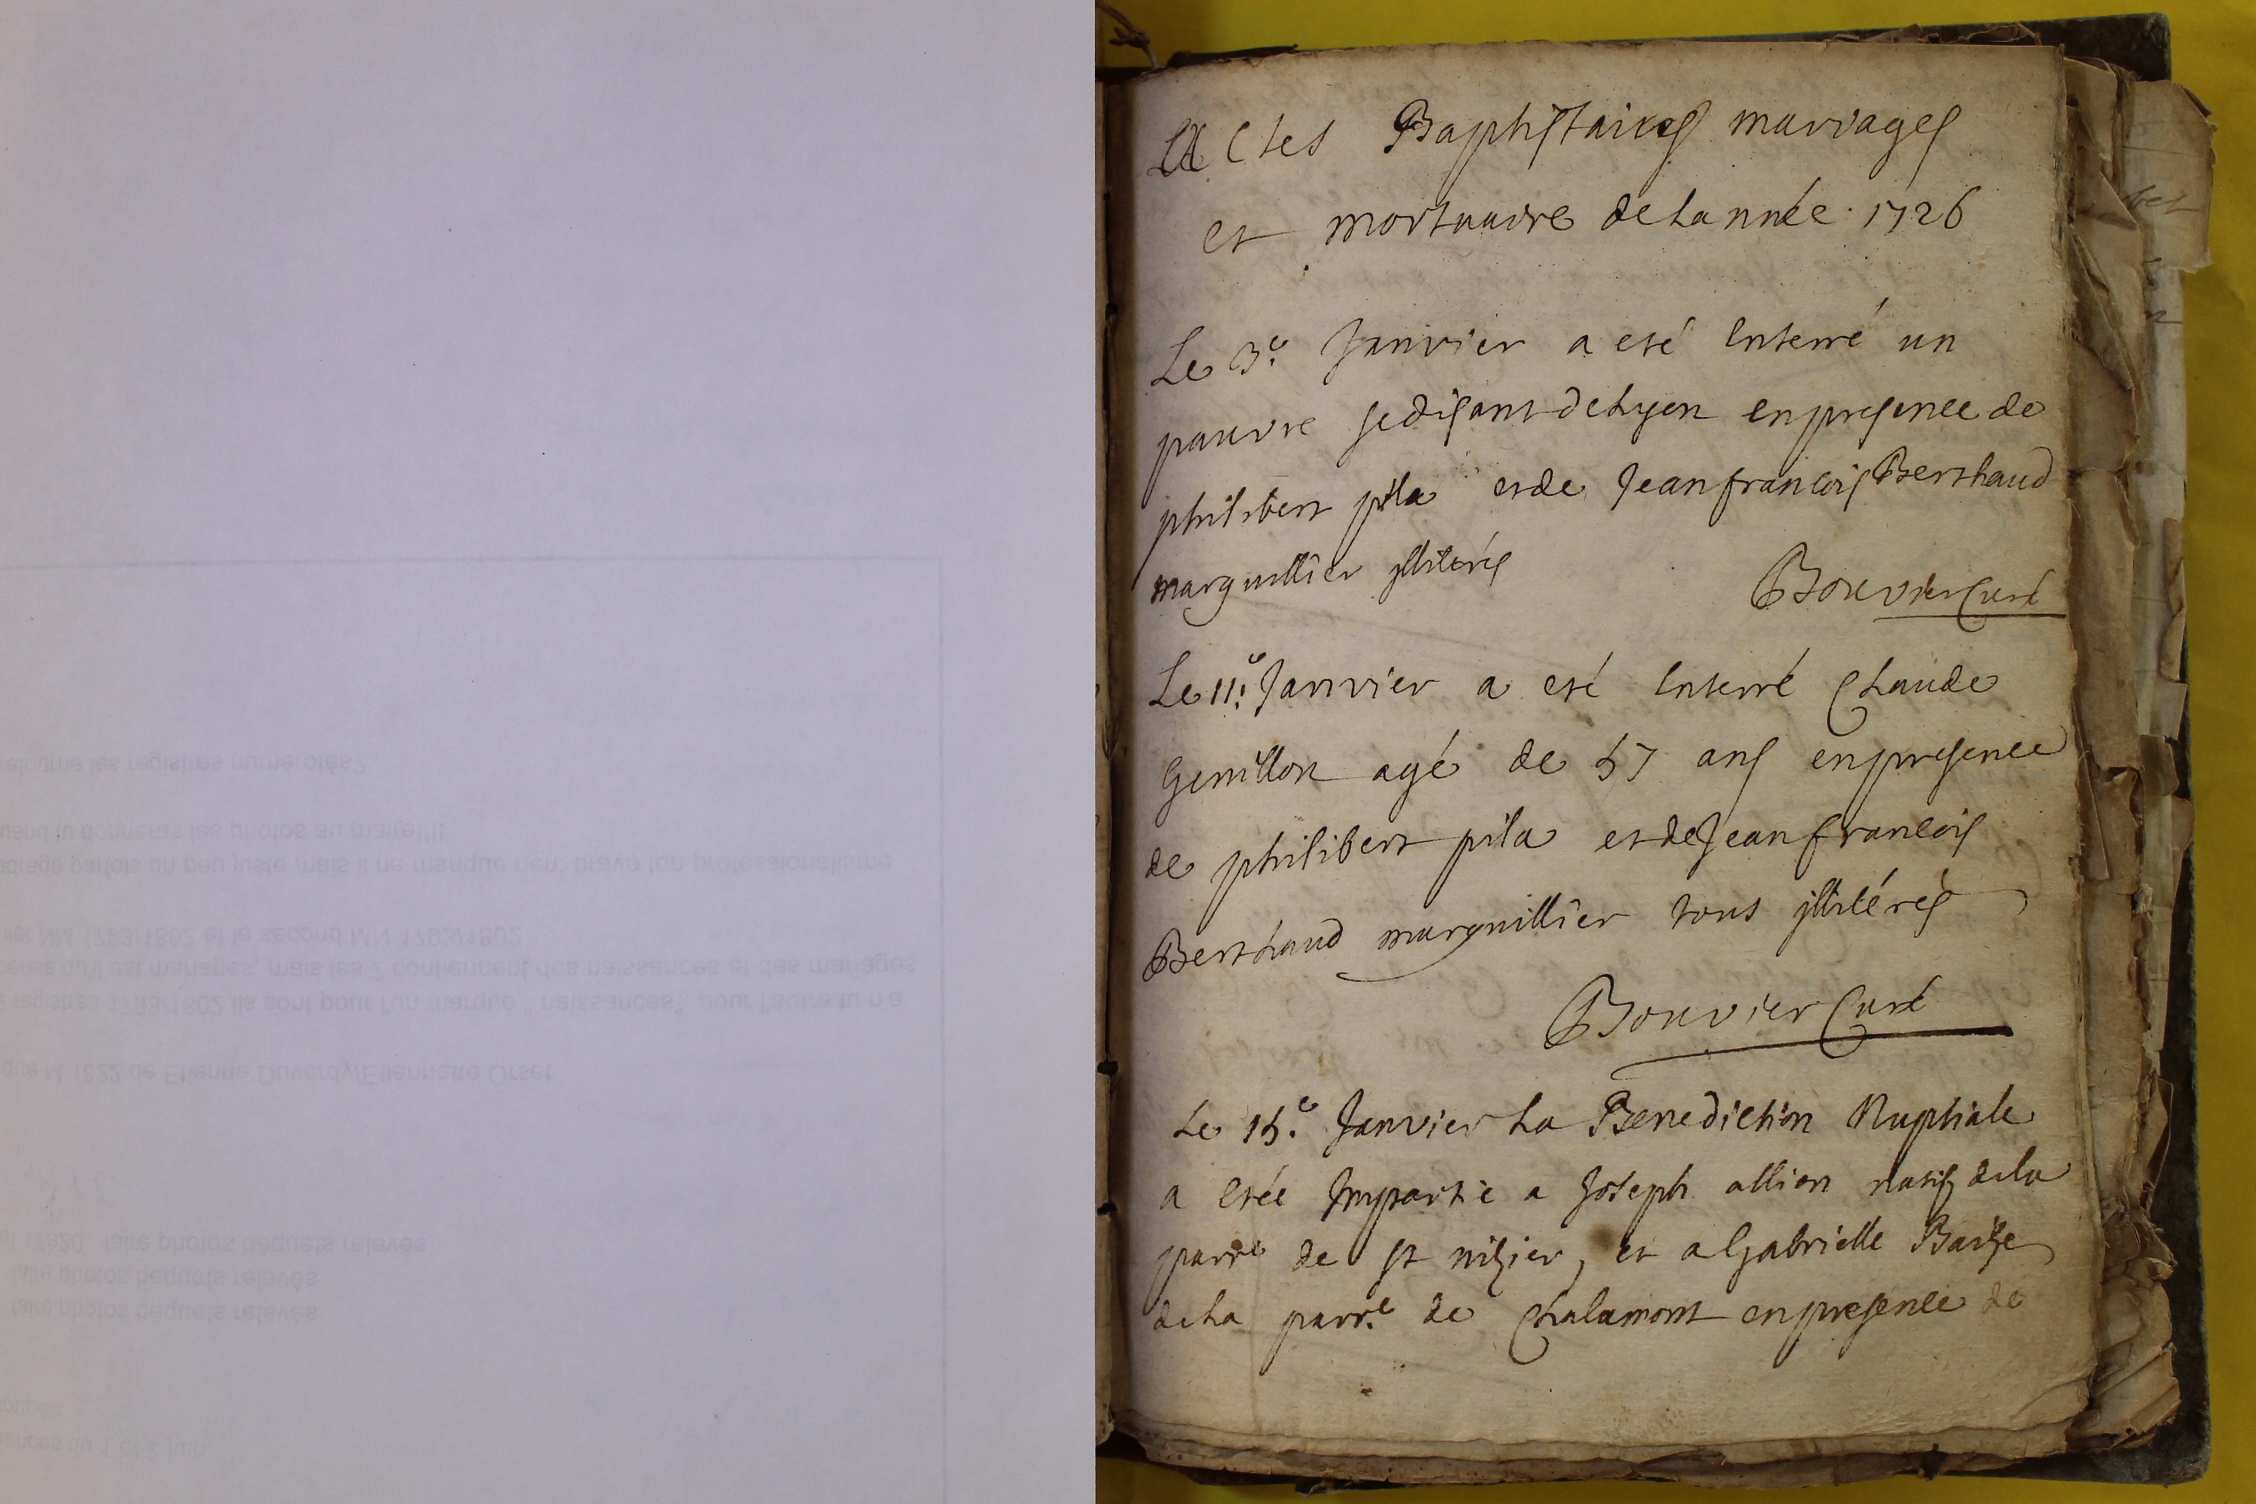 Actes Baptistaires mariages
et mortuaire de Lannée 1726
Le 3e Janvier a eté Enterré un
pauvre se disant de Lyon en presence de
philibert pila et de Jean francois Berthaud
marguillier illiterés
Bouvier Curé
Le 11e Janvier a eté Enterré Claude
Genillon agé de 57 ans en presence
de philibert pila et de Jean francois
Berthaud marguillier tous illiterés
Bouvier Curé
Le 15e Janvier La Benediction Nuptiale
a Etée Impartie a Joseph allion natif de la
parre de St nizier, et a Gabrielle
de La parre de Chalamont en presence de